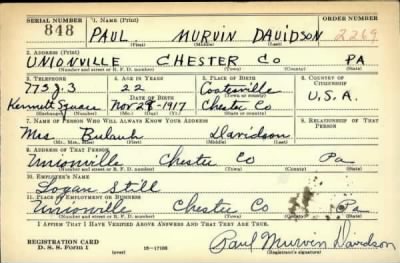 SERIAL NUMBER 1. NAME (Print) ORDER NUMBER
848 PAUL MURVIN DAVIDSON 2269
(First) (Middle) (Last)
2. ADDRESS (Print)
UNIONVILLE CHESTER CO PA
(Number and street or R. F. D. number) (Town) (County) (State)
3. TELEPHONE 4. AGE IN YEARS 5. PLACE OF BIRTH 6. COUNTRY OF CITIZENSHIP
775 J. 3 22 Coatesville
DATE OF BIRTH (Town or county)
Kennett Square Nov 28-1917 Chester Co U.S.A.
(Exchange) (Number) (Mo.) (Day) (Yr.) (State or country)
7. NAME OF PERSON WHO WILL ALWAYS KNOW YOUR ADDRESS 8. RELATIONSHIP OF THAT PERSON
Mrs Bulauh Davidson
(Mr., Mrs., Miss) (First) (Middle) (Last)
9. ADDRESS OF THAT PERSON
Unionville Chester Co Pa
(Number and street or R. F. D. number) (Town) (County) (State)
10. EMPLOYER'S NAME
Logan Still
11. PLACE OF EMPLOYMENT OR BUSINESS
Unionville Chester Co Pa
(Number and street or R. F. D. number) (Town) (County) (State)
I AFFIRM THAT I HAVE VERIFIED ABOVE ANSWERS AND THAT THEY ARE TRUE.
REGISTRATION CARD
D. S. S. Form 1 (over) 16-17105 Paul Murvin Davidson
(Registrant's signature)